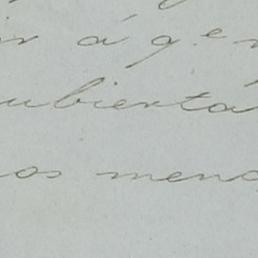 ir á q.e
ubierta
os meno